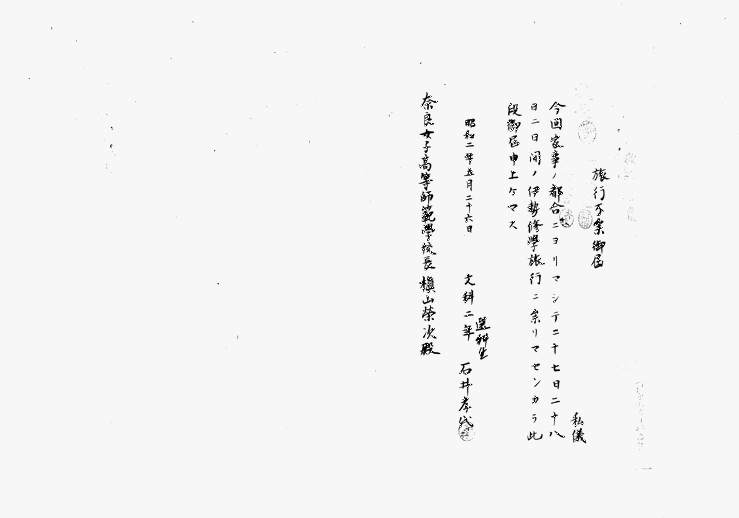 旅行不参御届
私儀
今回家事ノ都合ニヨリマシテ二十七日二十八
日二日間ノ伊勢修學旅行ニ参リマセンカラ此
段御届申上ケマス
昭和二年五月二十六日
選科生
文科二年 石井孝代
奈良女子高等師範學校長 槇山榮次殿